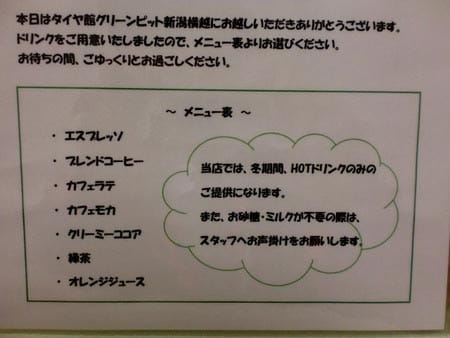 本日はタイヤ館グリーンピット新潟横越にお越しいただきありがとうございます。
ドリンクをご用意いたしましたので、メニュー表よりお選びください。
お待ちの間、ごゆっくりとお過ごしください。
～ メニュー表 ～
・ エスプレッソ
・ ブレンドコーヒー
・ カフェラテ
・ カフェモカ
・ クリーミーココア
・ 緑茶
・ オレンジジュース
当店では、冬期間、HOTドリンクのみの
ご提供になります。
また、お砂糖・ミルクが不要の際は、
スタッフへお声掛けをお願いします。